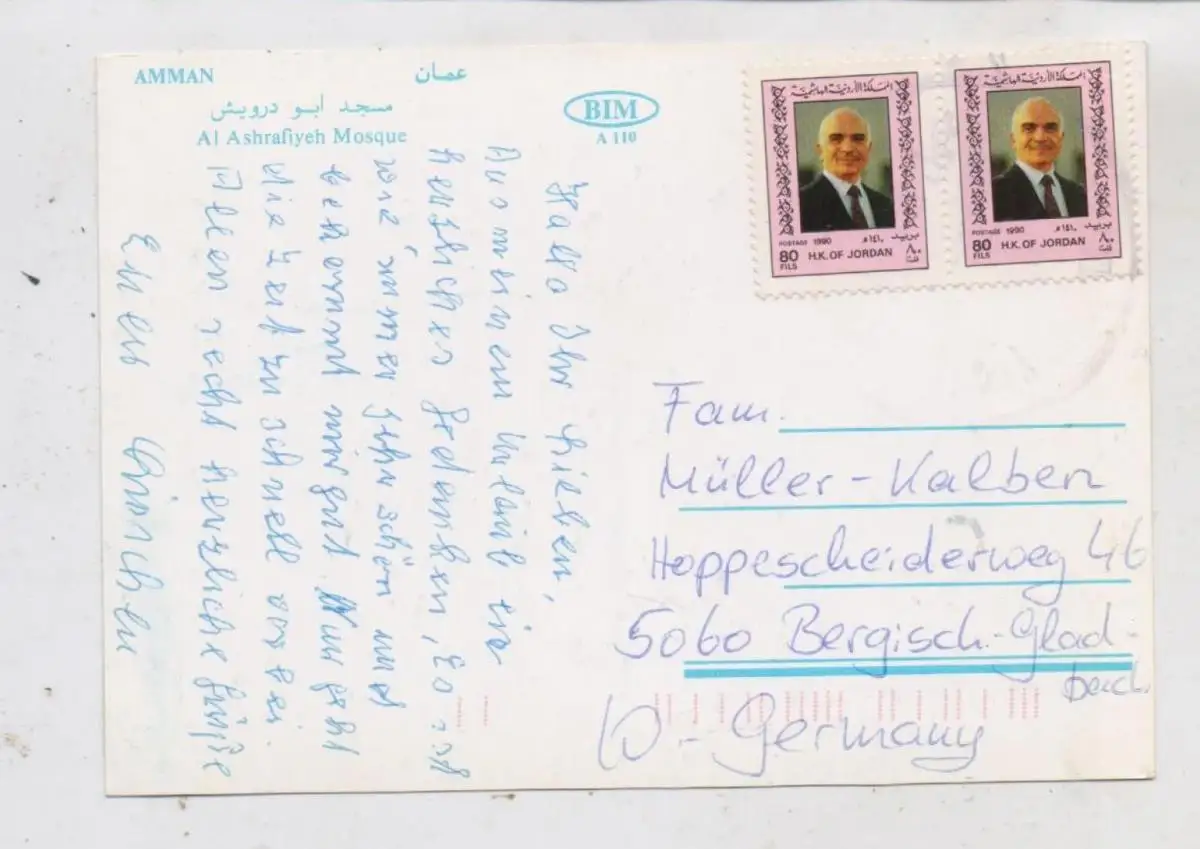 AMMAN عمان
مسجد ابو درويش
Al Ashrafiyeh Mosque
BIM
A 110
المملكة الأردنية الهاشمية
POSTAGE 1990 ١٤١٠م بريد
80 FILS H.K. OF JORDAN ٨٠ فلس
المملكة الأردنية الهاشمية
POSTAGE 1990 ١٤١٠م بريد
80 FILS H.K. OF JORDAN ٨٠ فلس
Hallo Ihr Lieben,
Aus meinem Urlaub ein
herzliches Gedenken, Es ist
wie immer sehr schön und
bekommt mir gut. Nur geht
die Zeit zu schnell vorbei.
Allen recht herzliche Grüße
Euer
Fam.
Müller-Kalben
Hoppescheiderweg 46
5060 Bergisch-Glad-
bach
W.-Germany